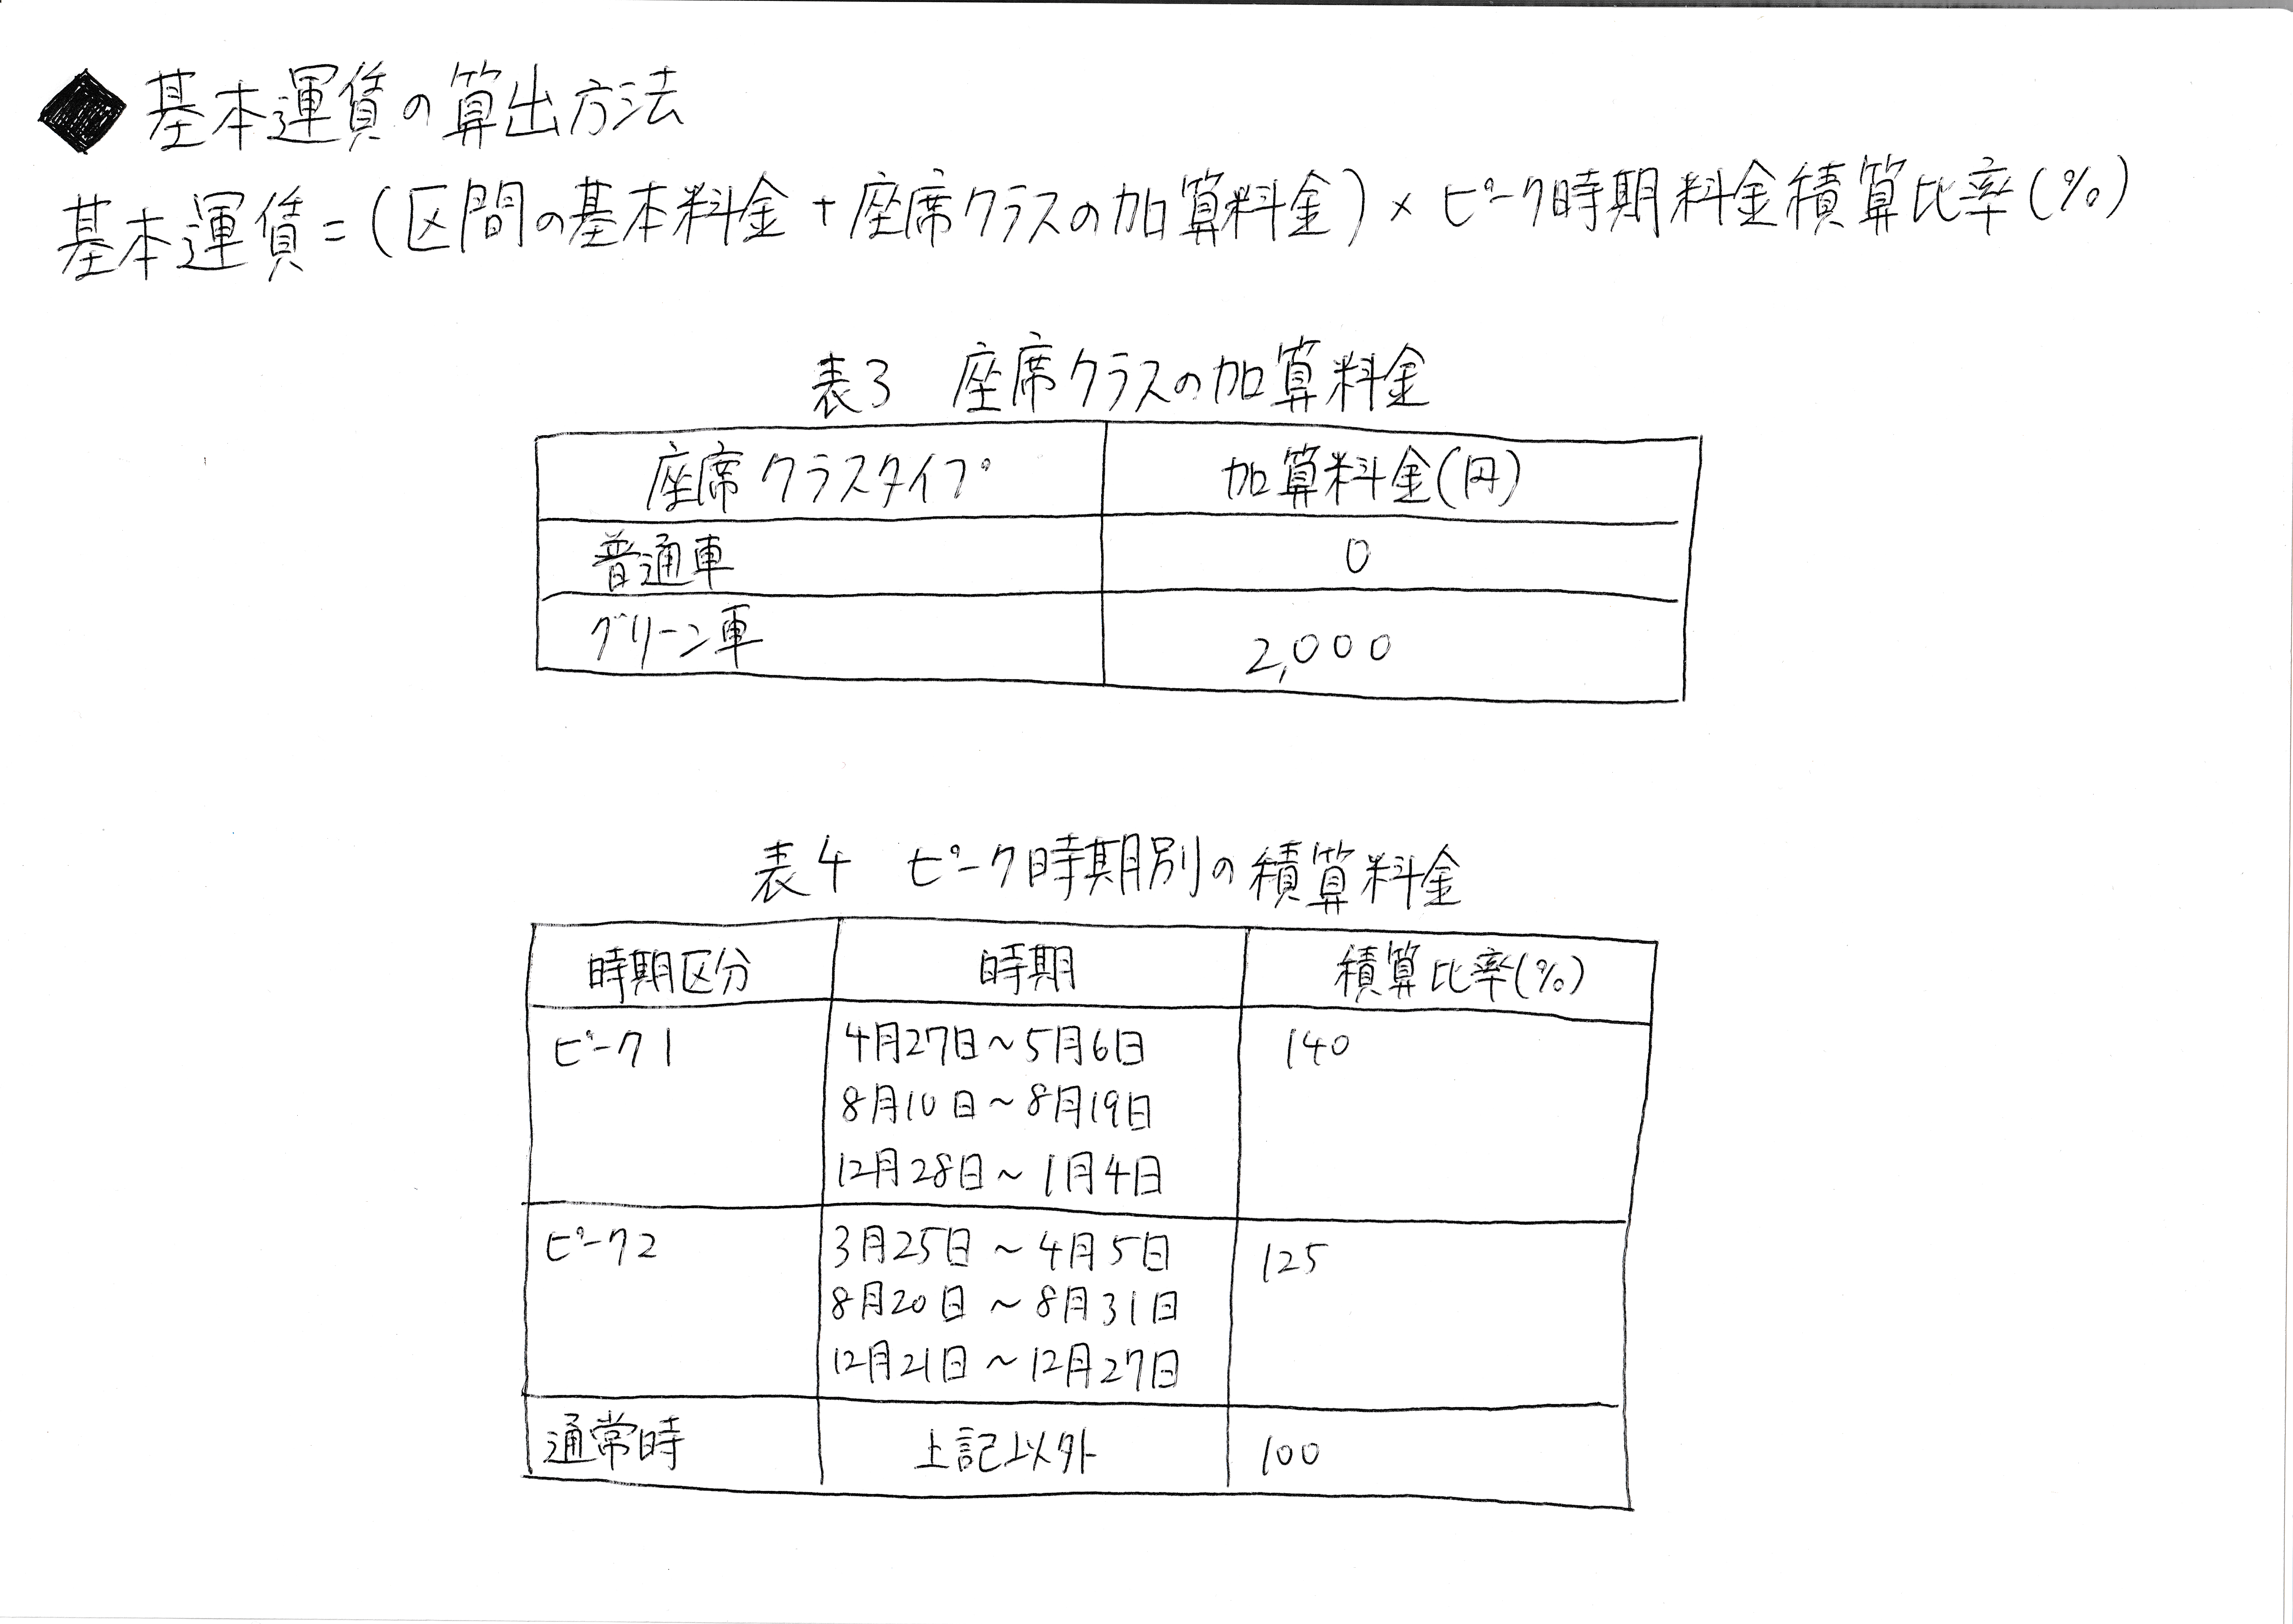 ◆基本運賃の算出方法
基本運賃=(区間の基本料金+座席クラスの加算料金)×ピーク時期料金積算比率(%)
表3 座席クラスの加算料金
座席クラスタイプ 加算料金(円)
普通車 0
グリーン車 2,000
表4 ピーク時期別の積算料金
時期区分 時期 積算比率(%)
ピーク1 4月27日~5月6日 140
8月10日~8月19日
12月28日~1月4日
ピーク2 3月25日~4月5日 125
8月20日~8月31日
12月21日~12月27日
通常時 上記以外 100